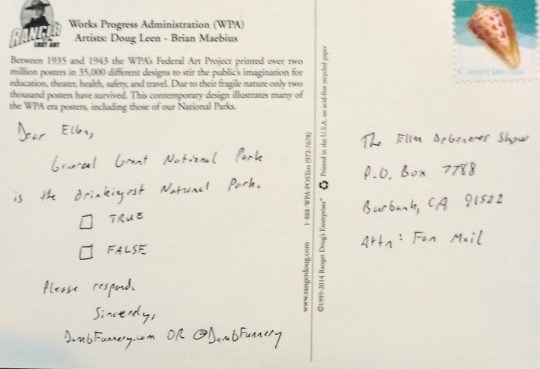 RANGER
OF THE
LOST ART
Works Progress Administration (WPA)
Artists: Doug Leen - Brian Maebius
Between 1935 and 1943 the WPA's Federal Art Project printed over two
million posters in 35,000 different designs to stir the public's imagination for
education, theater, health, safety, and travel. Due to their fragile nature only two
thousand posters have survived. This contemporary design illustrates many of
the WPA era posters, including those of our National Parks.
Dear Ellen,
General Grant National Park
is the drinkingest National Park.
TRUE
FALSE
Please respond.
Sincerely,
DumbFunnery.com OR @DumbFunnery
www.rangerdoug.com 1-888-WPA-POSTers (972-7678)
©1995-2014 Ranger Doug's Enterprises™ Printed in the U.S.A. on acid free recycled paper
POSTCARD
The Ellen DeGeneres Show
P.O. Box 7788
Burbank, CA 91522
Attn: Fan Mail